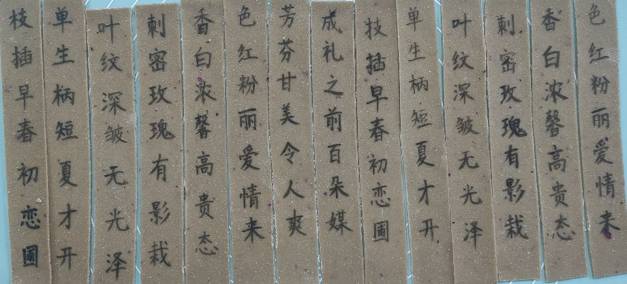 枝插早春初恋圃
单生柄短夏才开
叶纹深皱无光泽
刺密玫瑰有影栽
香白浓馨高贵态
色红粉丽爱情来
芳芬甘美令人爽
成礼之前百朵媒
枝插早春初恋圃
单生柄短夏才开
叶纹深皱无光泽
刺密玫瑰有影栽
香白浓馨高贵态
色红粉丽爱情来